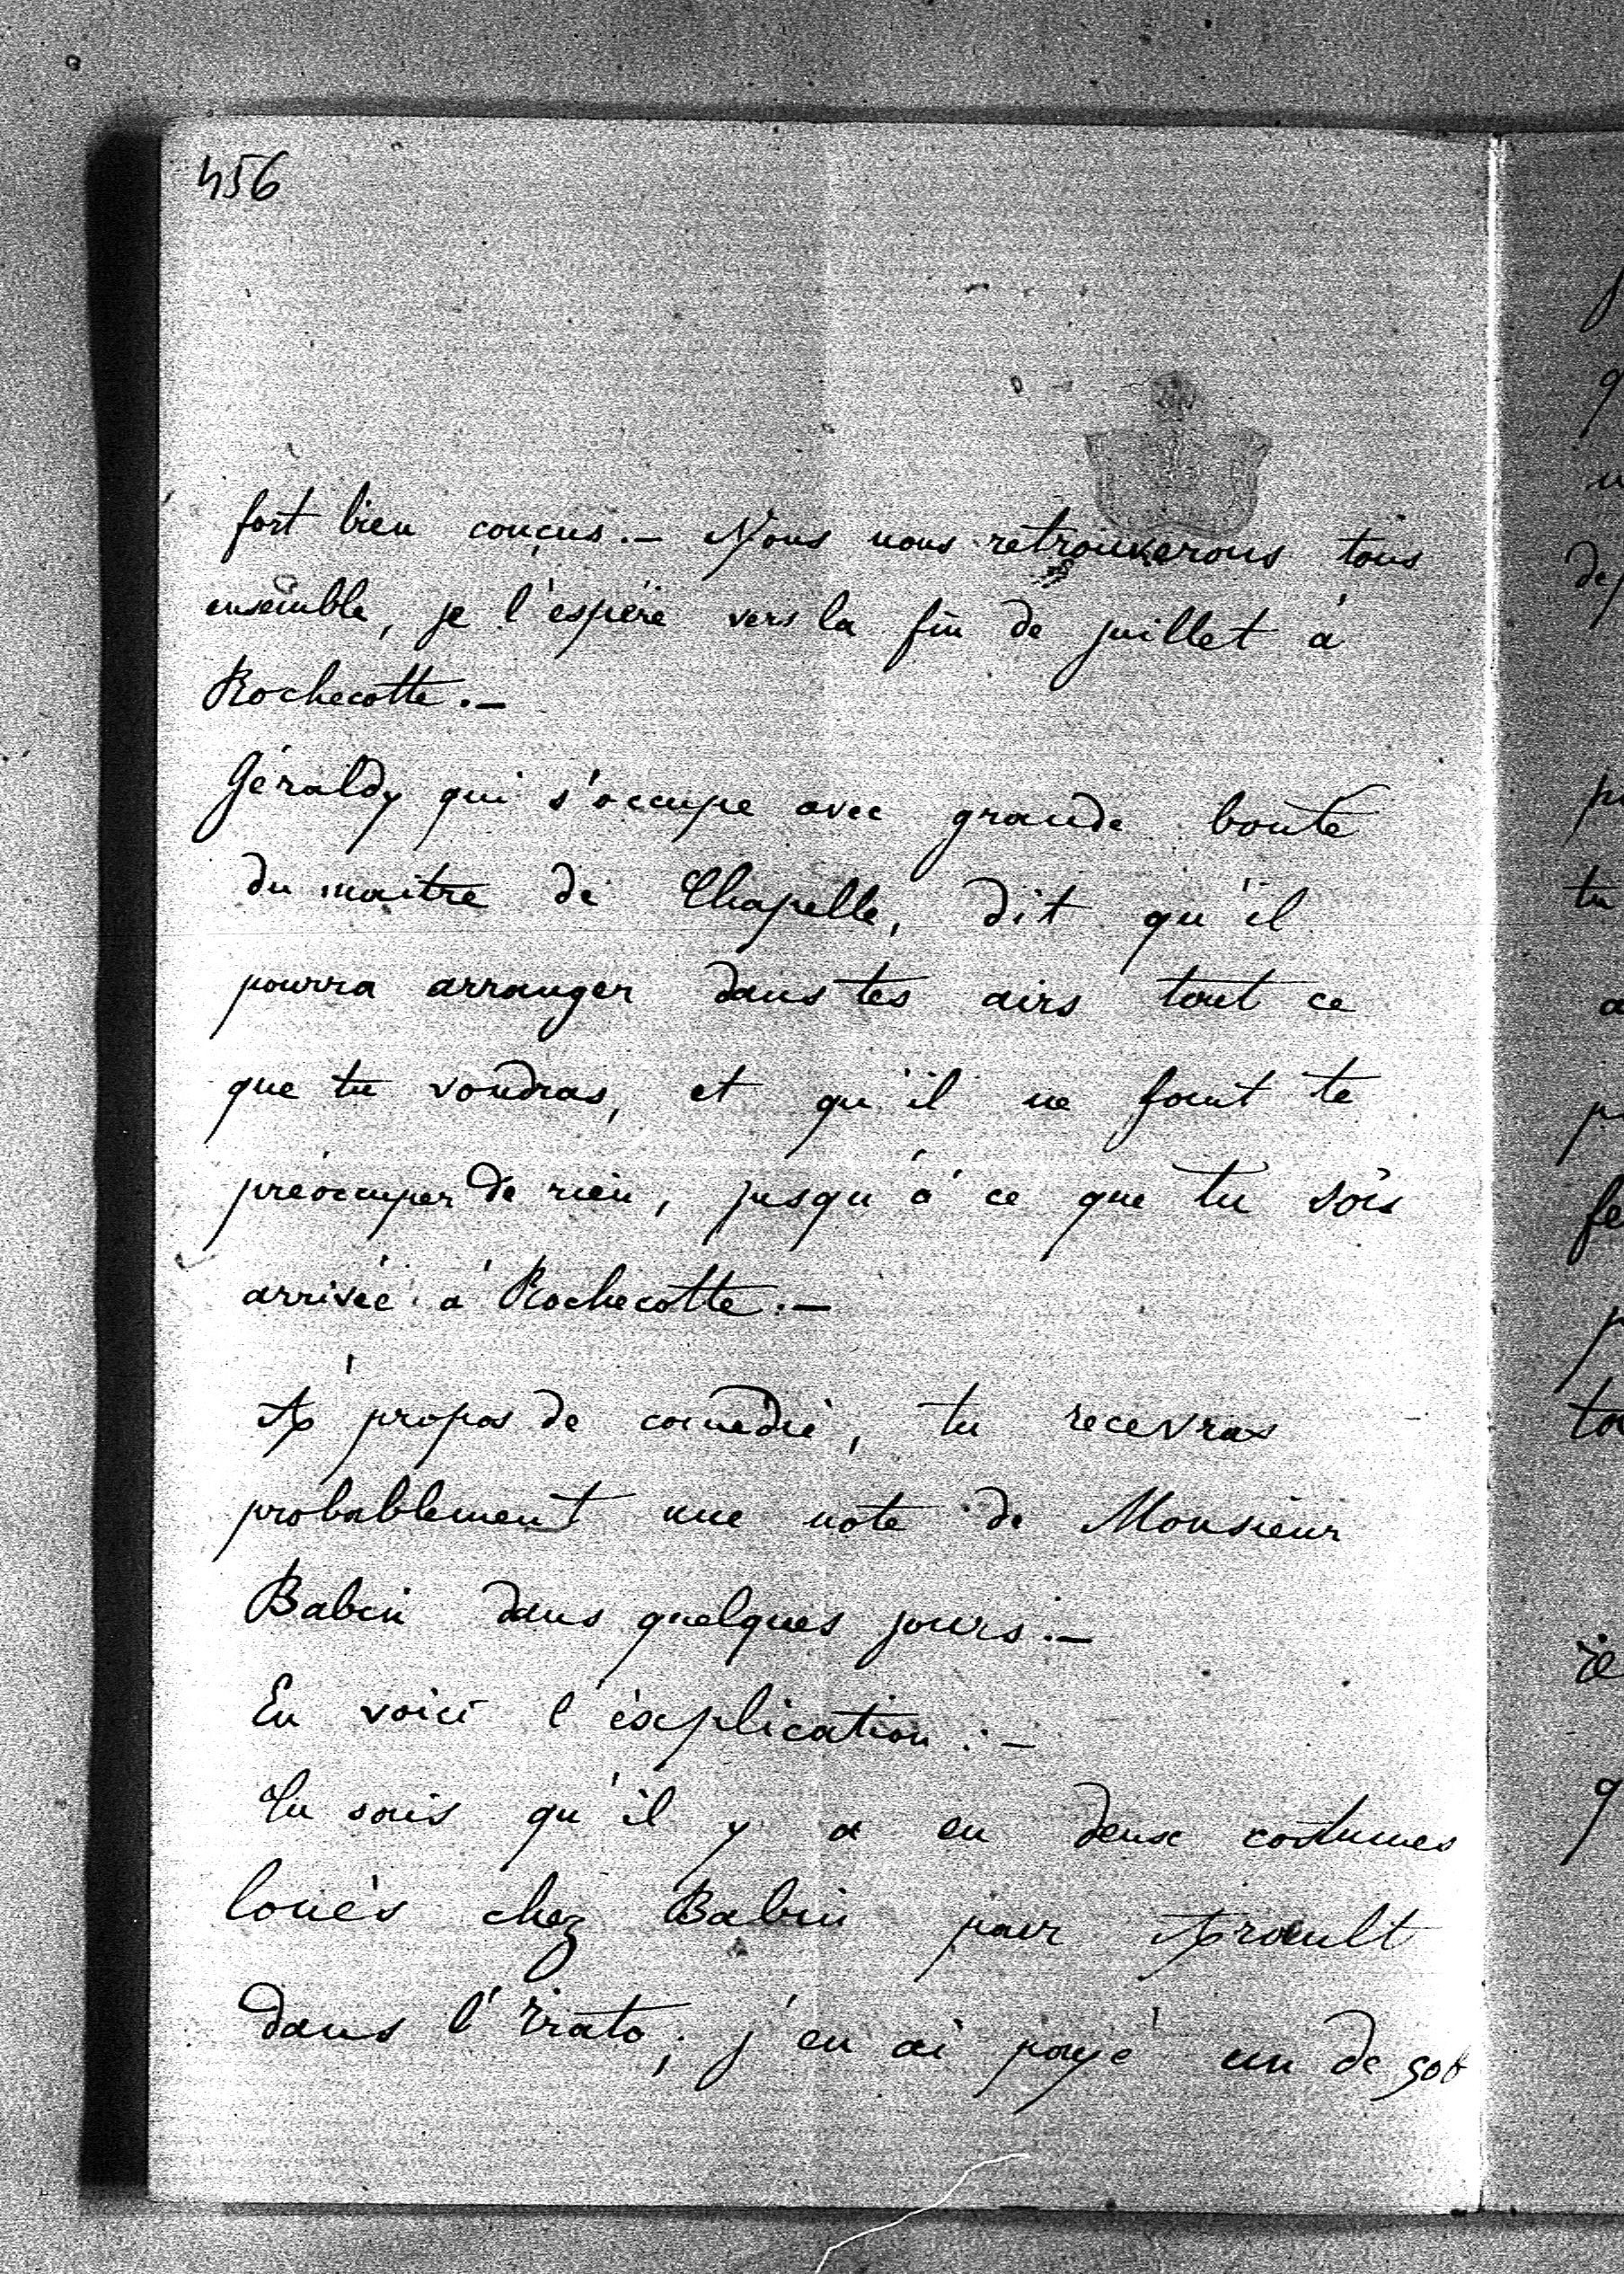 456
fort bien conçus. — Nous nous retrouverons tous
ensemble, je l'espère vers la fin de juillet à
Rochecotte. —
Géraldy qui s'occupe avec grande bonté
du maitre de Chapelle, dit qu'il
pourra arranger dans tes airs tout ce
que tu voudras, et qu'il ne faut te
préoccuper de rien, jusqu'à ce que tu sois
arrivée à Rochecotte. —
A propos de comédie, tu recevras
probablement une note de Monsieur
Babin dans quelques jours. —
En voici l'éxplication : —
Tu sais qu'il y a eu deux costumes
loués chez Babin pour
dans l' j'en ai payé un de